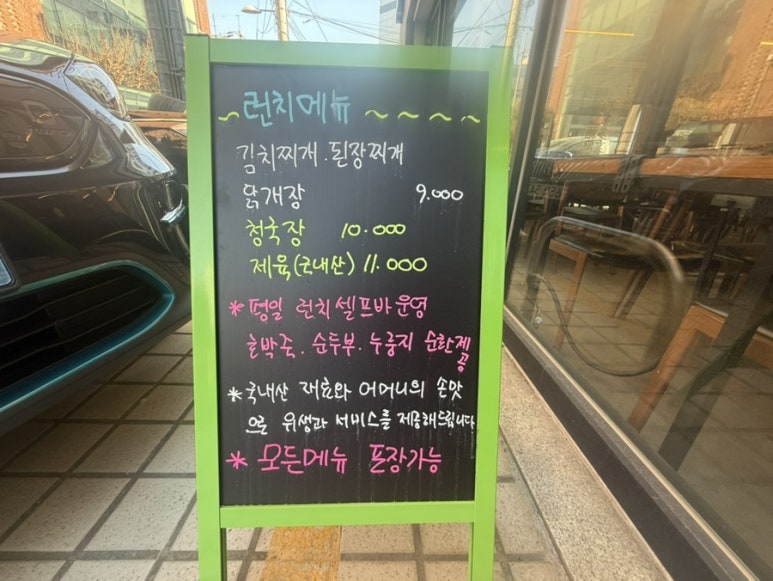 ~런치메뉴~~~~
김치찌개.된장찌개
닭개장 9.000
청국장 10.000
제육(국내산) 11.000
*평일 런치셀프바운영
호박죽. 순두부. 누룽지 순환제공
*국내산 재료와 어머니의 손맛
으로 위생과 서비스를 제공해드립니다
* 모든메뉴 포장가능